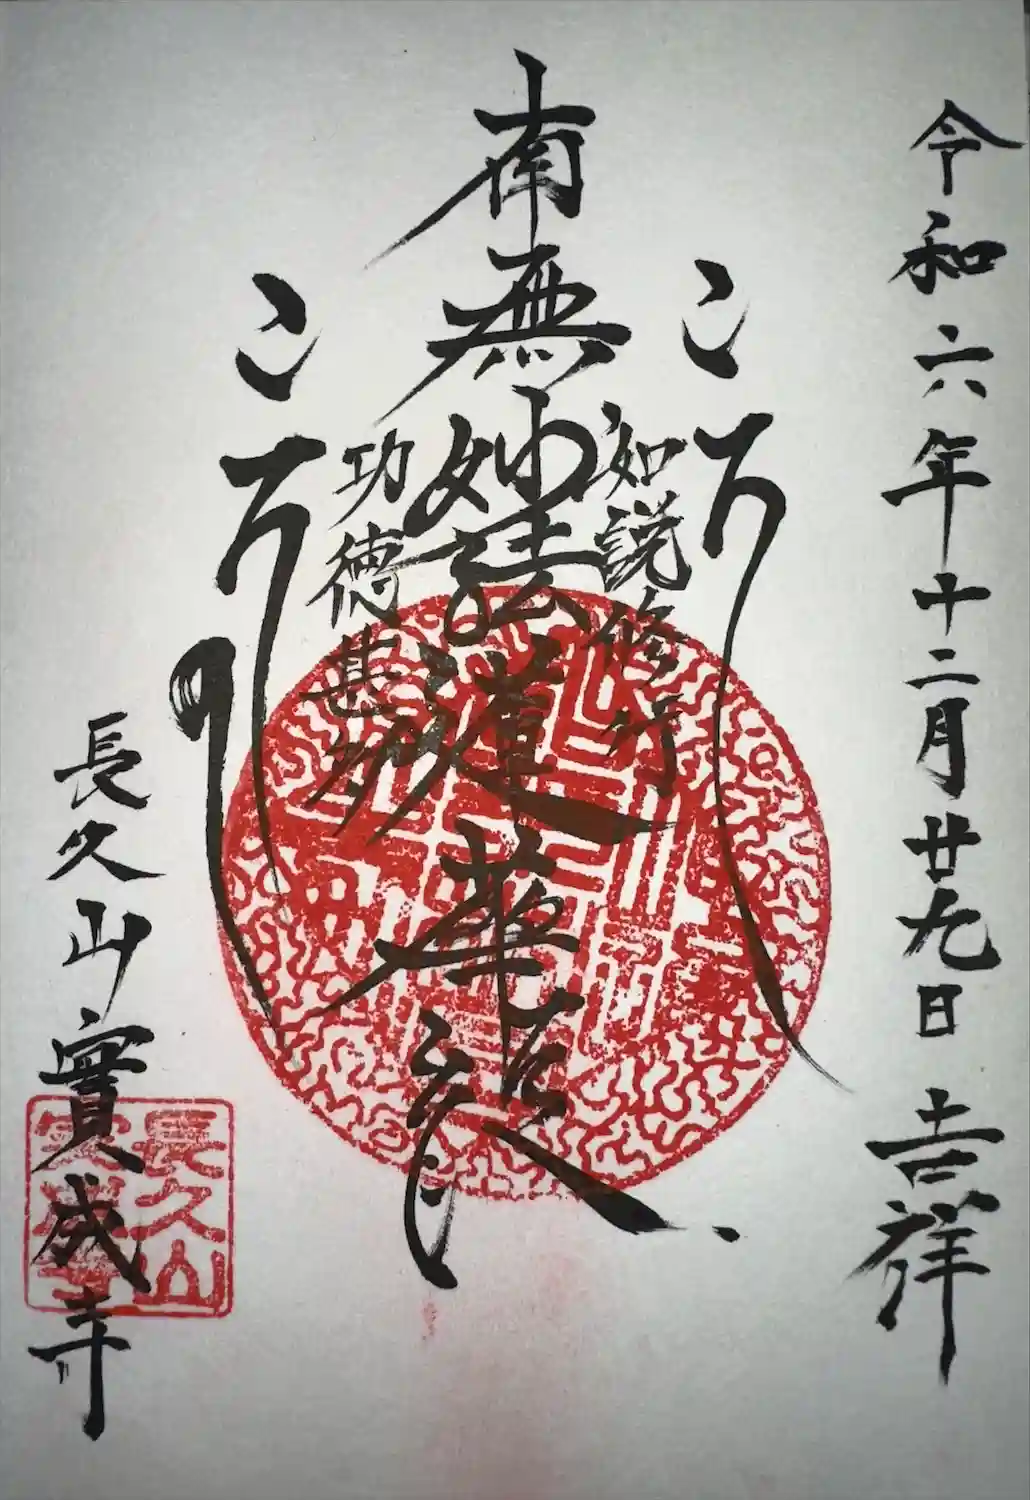 令和六年十二月廿九日 吉祥
如説修行
南無妙法蓮華経
功徳甚多
長久山實成寺
長久山